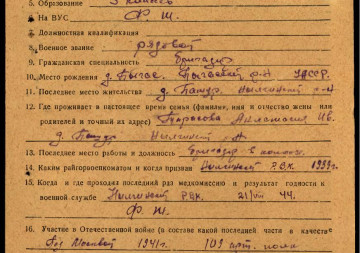 5. Образование 3 класса
6. На ВУС Ф. Ж.
7. Должностная квалификация
8. Военное звание рядовой
9. Гражданская специальность бригадир
10. Место рождения д. р-н УАССР.
11. Последнее место жительства д. Нылгинский р-н
12. Где проживает в настоящее время семья (фамилия, имя и отчество жены или
родителей и точный их адрес) Тарасова Анастасия Ив.
д. Нылгинский
13. Последнее место работы и должность бригадир в колхозе
14. Каким райгорвоенкоматом и когда призван Нылгинский РВК. 1939г.
15. Когда и где проходил последний раз медкомиссию и результат годности к
военной службе Нылгинский РВК. 21/VIII 44.
Ф. Ж.
16. Участие в Отечественной войне (в составе какой последней части в качестве
Под Москвой 1941г. 109 арт. полк